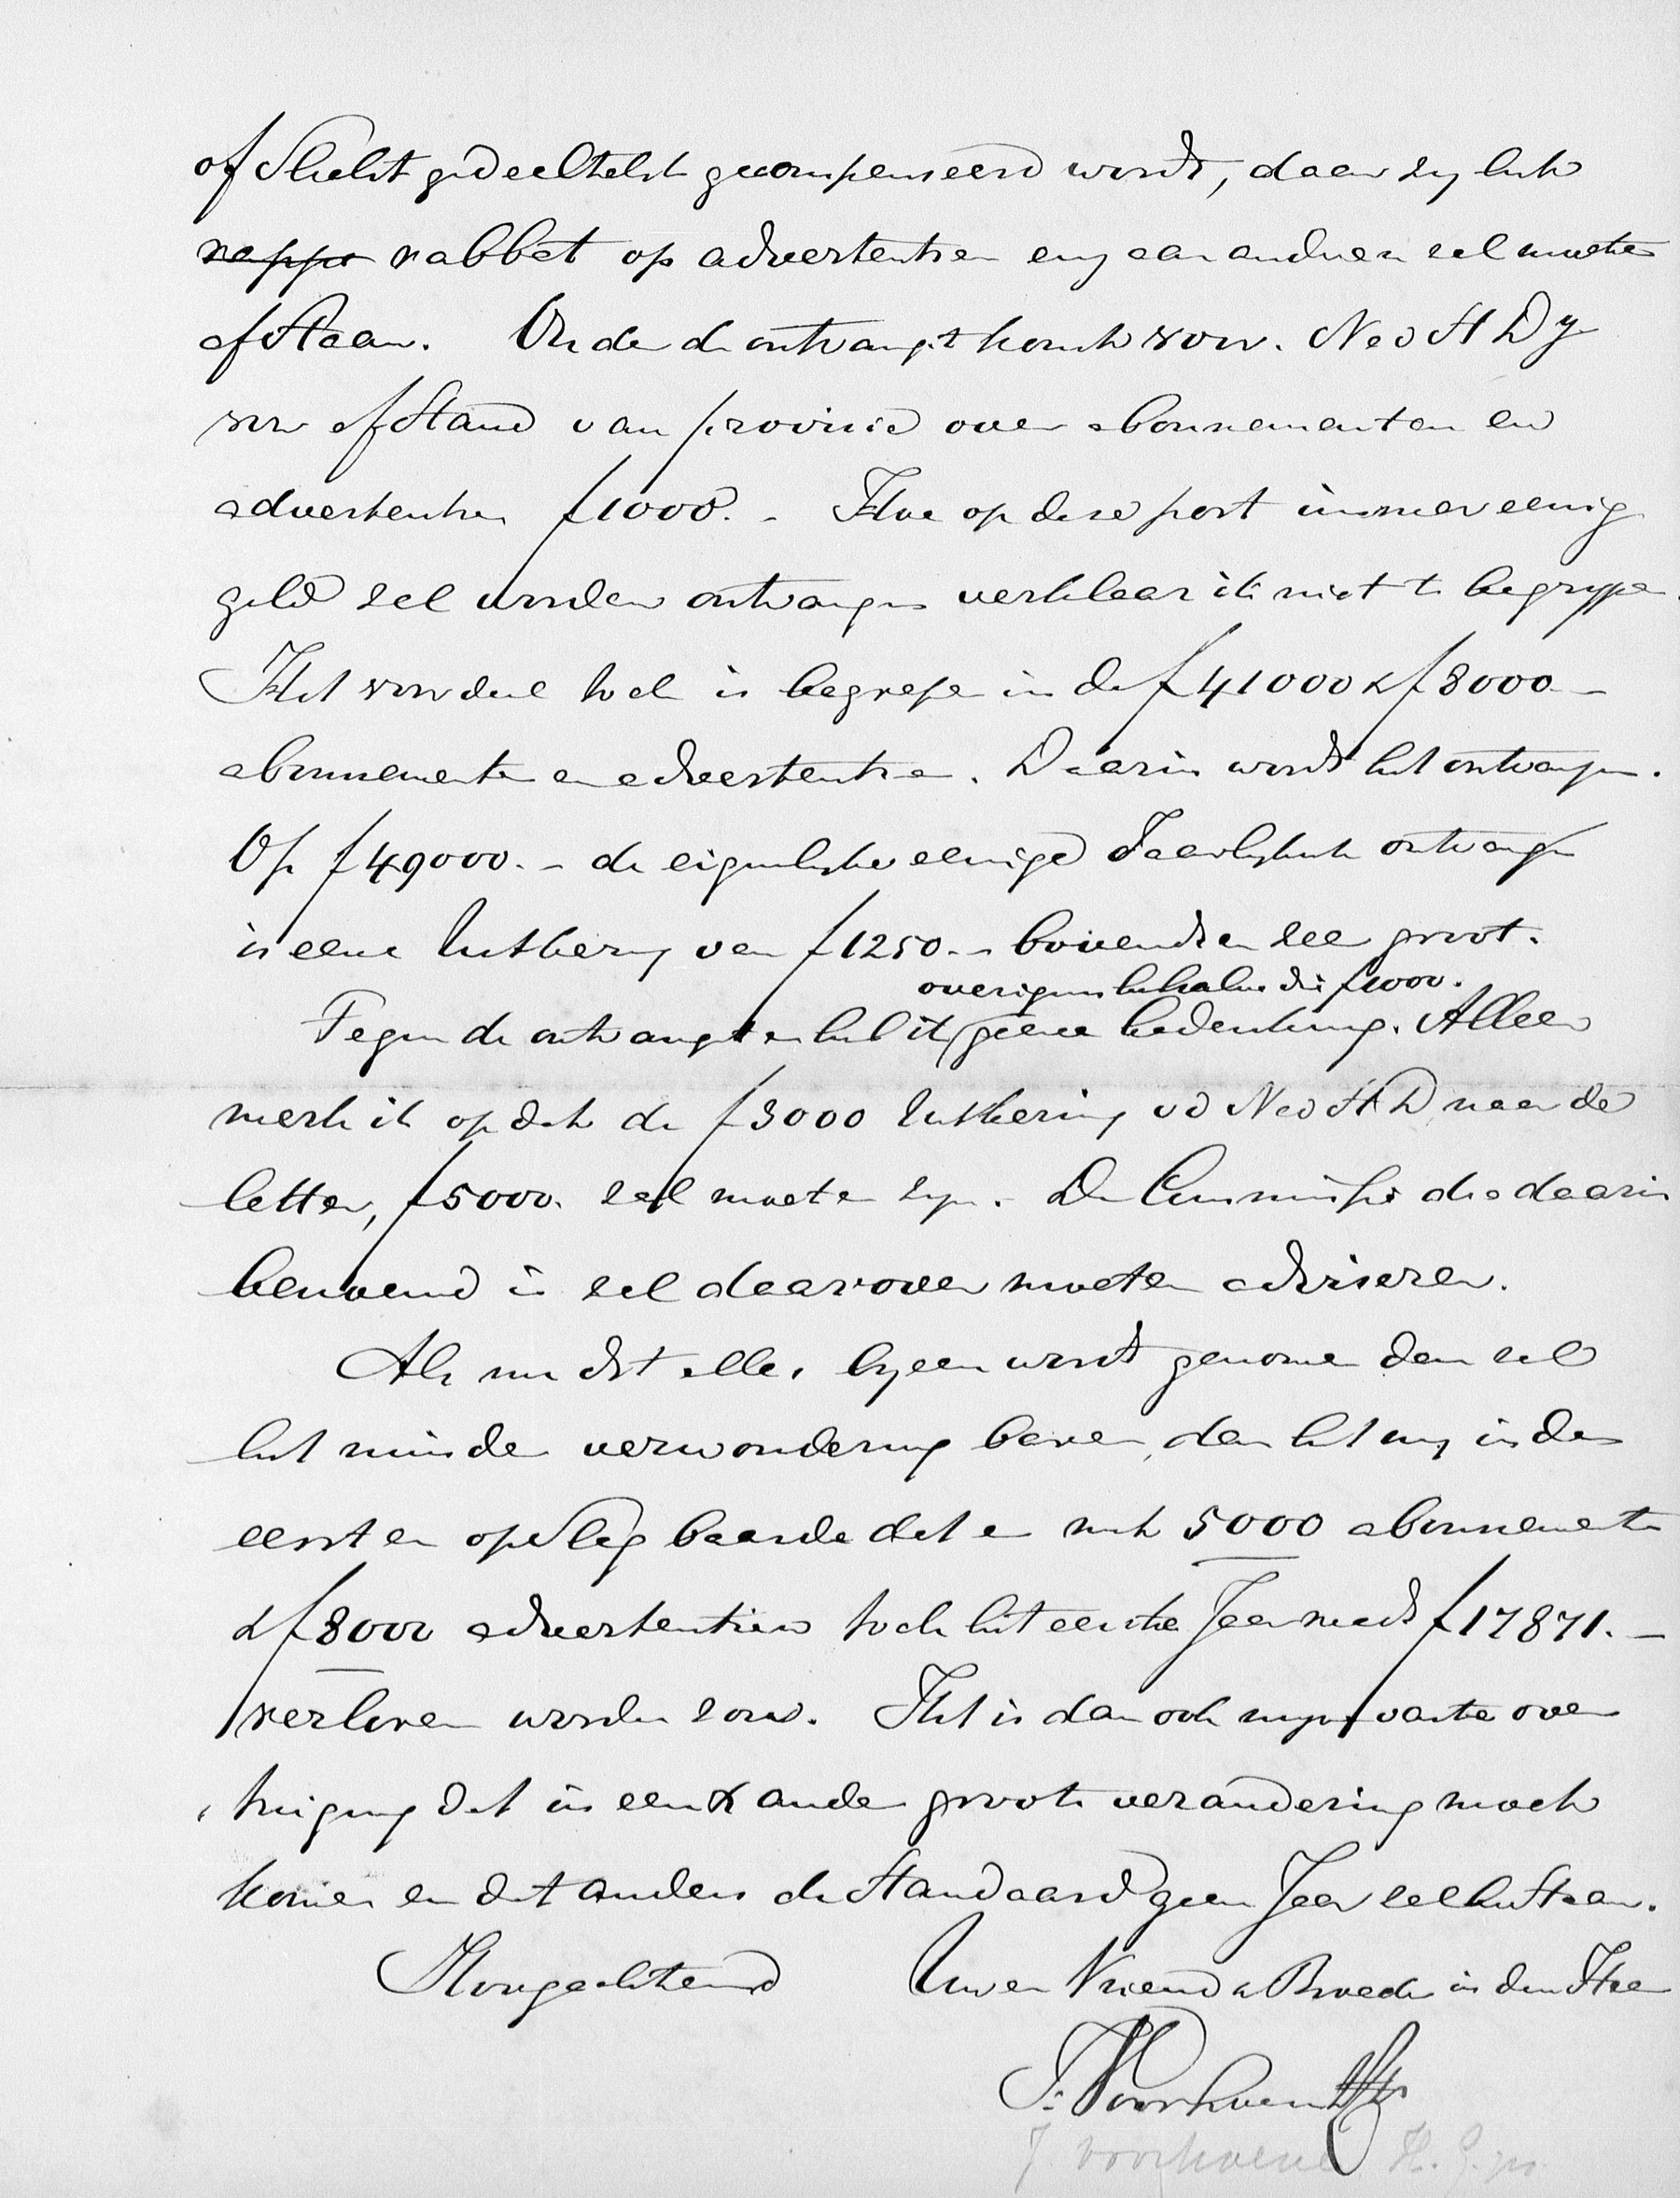 of slecht gedeeltelijk gecompenseerd wordt, daar zy ook
rappo rabbet op advertentien enz aan anderen zal moeten
afstaan. Onder de ontvangst komt voor. Ned St Dy
voor afstand van provisie over abonnementen en
advertentien f 1000. - Hoe op deze post immer eenig
geld zal worden ontvangen verklaar ik niet te begrypen.
Het voordeel toch is begrepen in de f 41000 & f 8000 -
abonnementen en advertentien. Daarin wordt het ontvangen.
Op f 49000. - de eigenlyke eenige Jaarlyksche ontvangst
is eene uitkeering van f 1250. - bovendien zeer groot.
overigens behalve die f 1000.
Tegen de ontvangsten heb ik geene bedenking. Alleen
merk ik op dat de f 3000 uitkeering vd Ned St D naar de
letter, f 5000. zal moeten zyn. De Commissie die daarin
benoemd is zal daarover moeten adviseren.
Als nu dit alles byeen wordt genomen dan zal
het minder verwondering baren, dan het my in den
eersten opslag baarde dat er met 5000 abonnementen
& f 8000 advertentien toch het eerste Jaar reeds f 17871. -
verloren worden zou. Het is dan ook myne vaste over
tuiging dat in een & ander groote verandering moet
komen en dat anders de Standaard geen Jaar zal bestaan.
Hoogachtend Uwen Vriend & Broeder in den Heer
J. Voorhoeve HCzn
J. Voorhoeve H. C. zn.